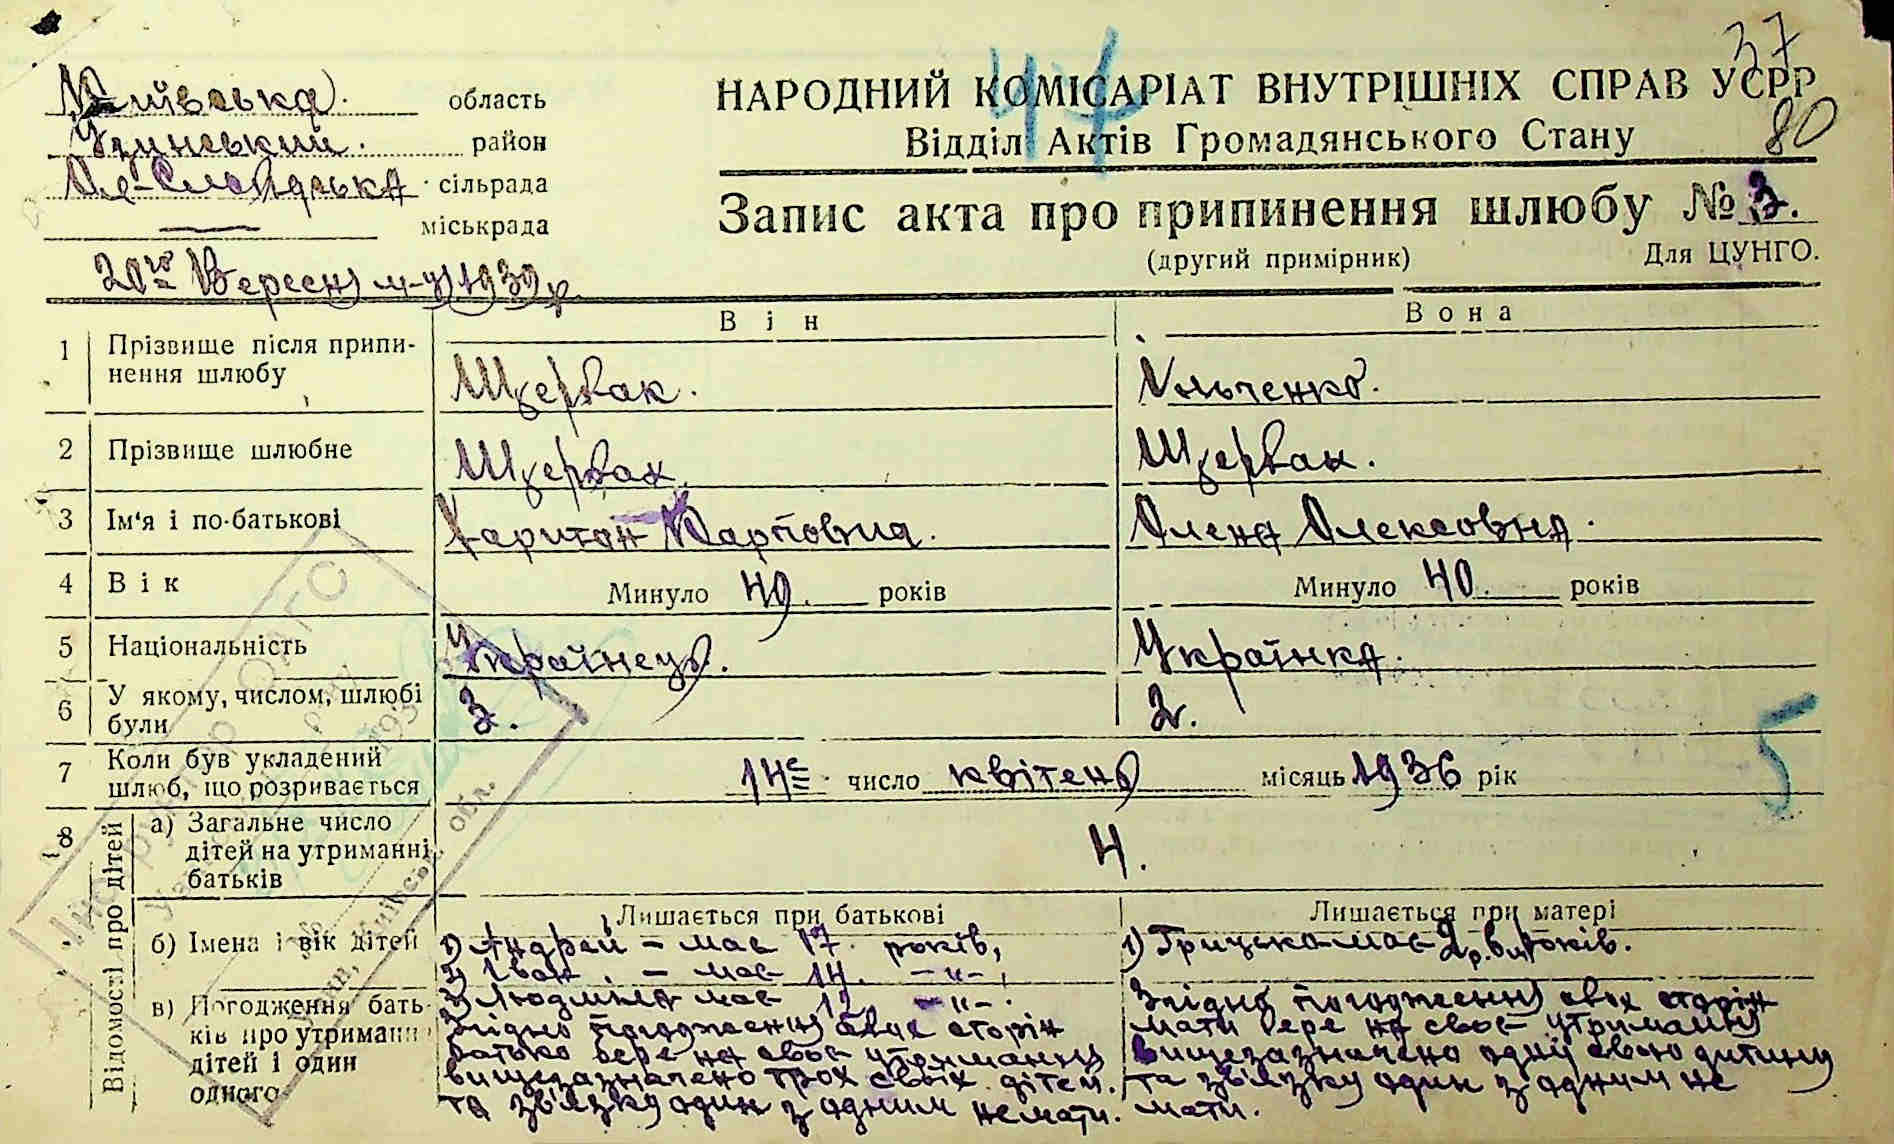 37
80
44
Київська область
Узинський район
Ол-Слобідська сільрада
міськрада
20го Вересня м-ця 1939 р
НАРОДНИЙ КОМІСАРІАТ ВНУТРІШНІХ СПРАВ УСРР
Відділ Актів Громадянського Стану
Запис акта про припинення шлюбу № 3.
(другий примірник) Для ЦУНГО.
Він Вона
1 Прізвище після припинення шлюбу Щербак. Ильченко.
2 Прізвище шлюбне Щербак. Щербак.
3 Ім'я і по-батькові Харитон Карпович. Олена Олексовна.
4 Вік Минуло 49. років Минуло 40. років
5 Національність Українець. Українка.
6 У якому, числом, шлюбі були 3. 2.
7 Коли був укладений шлюб, що розривається 14е число квітень місяць 1936 рік
5
8 Відомості про дітей
а) Загальне число дітей на утриманні батьків 4.
Лишається при батькові Лишається при матері
б) Імена і вік дітей
1) Андрей – має 17 років,
2) Іван – має 14. –"–,
3) Людмила має 12 –"–.
1) Грицько має 2 р. років.
в) Погодження батьків про утримання дітей і один одного
Згідно погодження обох сторін
батько бере на своє утримання
вищезазначено трох своїх дітей.
та зв'язку один з одним не мати.
Згідно погодження обох сторін
мати бере на своє утримання
вищезазначено одну свою дитину
та зв'язку один з одним не
мати.